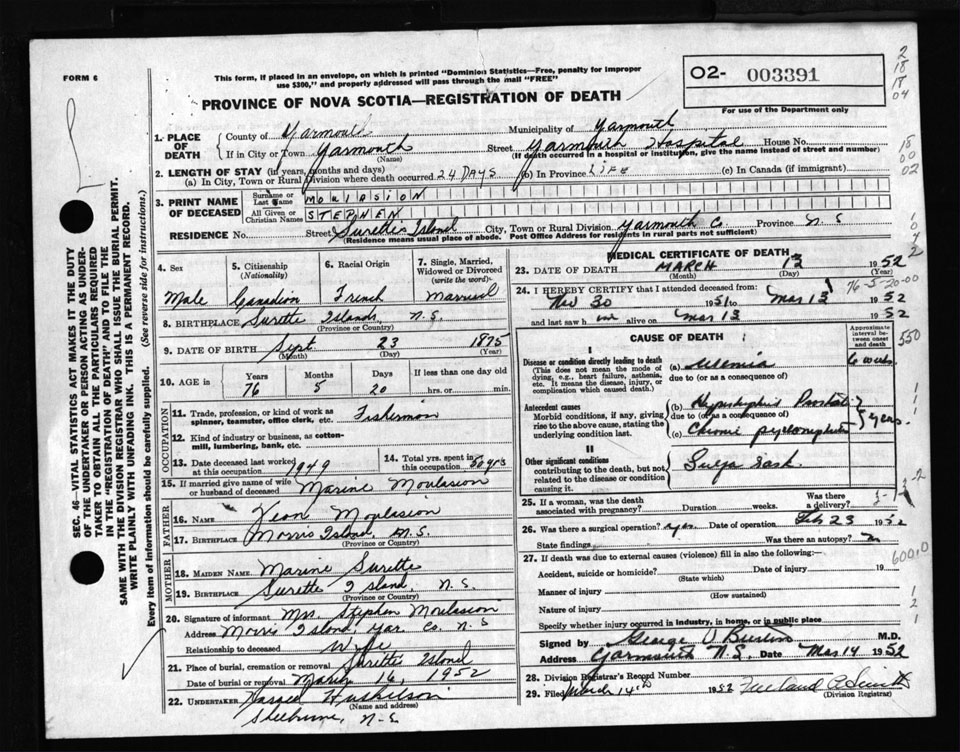 FORM 6
This form, if placed in an envelope, on which is printed "Dominion Statistics—Free, penalty for improper
use $300," and properly addressed will pass through the mail "FREE"
O2- 003391
For use of the Department only
PROVINCE OF NOVA SCOTIA—REGISTRATION OF DEATH
2
18
17
04
18
00
02
SEC. 46—VITAL STATISTICS ACT MAKES IT THE DUTY
OF THE UNDERTAKER OR PERSON ACTING AS UNDER-
TAKER TO OBTAIN ALL THE PARTICULARS REQUIRED
IN THE "REGISTRATION OF DEATH" AND TO FILE THE
SAME WITH THE DIVISION REGISTRAR WHO SHALL ISSUE THE BURIAL PERMIT.
WRITE PLAINLY WITH UNFADING INK. THIS IS A PERMANENT RECORD.
Every item of information should be carefully supplied. (See reverse side for instructions.)
1. PLACE OF DEATH
County of Yarmouth Municipality of Yarmouth
If in City or Town Yarmouth Street Yarmouth Hospital House No.
(Name) (If death occurred in a hospital or institution, give the name instead of street and number)
2. LENGTH OF STAY (in years, months and days)
(a) In City, Town or Rural Division where death occurred 24 DAYS (b) In Province LIFE (c) In Canada (if immigrant)
3. PRINT NAME OF DECEASED
Surname or Last Name MOULASION
All Given or Christian Names STEPHEN
RESIDENCE No. Street Surette's Island City, Town or Rural Division Yarmouth Co Province N S
(Residence means usual place of abode. Post Office Address for residents in rural parts not sufficient)
4. Sex
Male
5. Citizenship (Nationality)
Canadian
6. Racial Origin
French
7. Single, Married, Widowed or Divorced (write the word)
Married
8. BIRTHPLACE Surette Islands, N.S.
(Province or Country)
9. DATE OF BIRTH Sept. 23 1875
(Month) (Day) (Year)
10. AGE in Years Months Days If less than one day old
76 5 20 hrs. or min.
OCCUPATION
11. Trade, profession, or kind of work as spinner, teamster, office clerk, etc. Fisherman
12. Kind of industry or business, as cotton-mill, lumbering, bank, etc.
13. Date deceased last worked at this occupation 1949
14. Total yrs. spent in this occupation 50 yrs
15. If married give name of wife or husband of deceased Marine Moulasion
FATHER
16. NAME Moulasion
17. BIRTHPLACE Morris Island, N.S.
(Province or Country)
MOTHER
18. MAIDEN NAME Marine Surette
19. BIRTHPLACE Surette Island, N.S.
(Province or Country)
20. Signature of informant Mrs. Stephen Moulasion
Address Morris Island, Yar. Co. N.S
Relationship to deceased Wife
21. Place of burial, cremation or removal Surette Island
Date of burial or removal March 16, 1952
22. UNDERTAKER Huskilson
(Name and address)
Shelburne, N-S
MEDICAL CERTIFICATE OF DEATH
23. DATE OF DEATH MARCH 13 1952
(Month) (Day) (Year)
76-5-20-00
24. I HEREBY CERTIFY that I attended deceased from:
Nov 30 1951 to Mar 13 1952
and last saw h im alive on Mar 13 1952
CAUSE OF DEATH
Approximate interval between onset and death
550
I
Disease or condition directly leading to death
(This does not mean the mode of dying, e.g., heart failure, asthma, etc. It means the disease, injury, or complication which caused death.)
(a) Uremia 6 weeks
due to (or as a consequence of)
Antecedent causes
Morbid conditions, if any, giving rise to the above cause, stating the underlying condition last.
(b) Prostate
due to (or as a consequence of)
(c) Chronic pyelonephritis 5 years
II
Other significant conditions
contributing to the death, but not related to the disease or condition causing it.
25. If a woman, was the death associated with pregnancy? Duration weeks. Was there a delivery?
26. Was there a surgical operation? yes Date of operation Feb 23 1952
State findings Was there an autopsy?
27. If death was due to external causes (violence) fill in also the following:—
Accident, suicide or homicide? Date of injury 19
(State which)
Manner of injury
(How sustained)
Nature of injury
Specify whether injury occurred in industry, in home, or in public place
Signed by George V Burton M.D.
Address Yarmouth N.S. Date Mar 14 1952
28. Division Registrar's Record Number
29. Filed March 14th 1952
(Division Registrar)